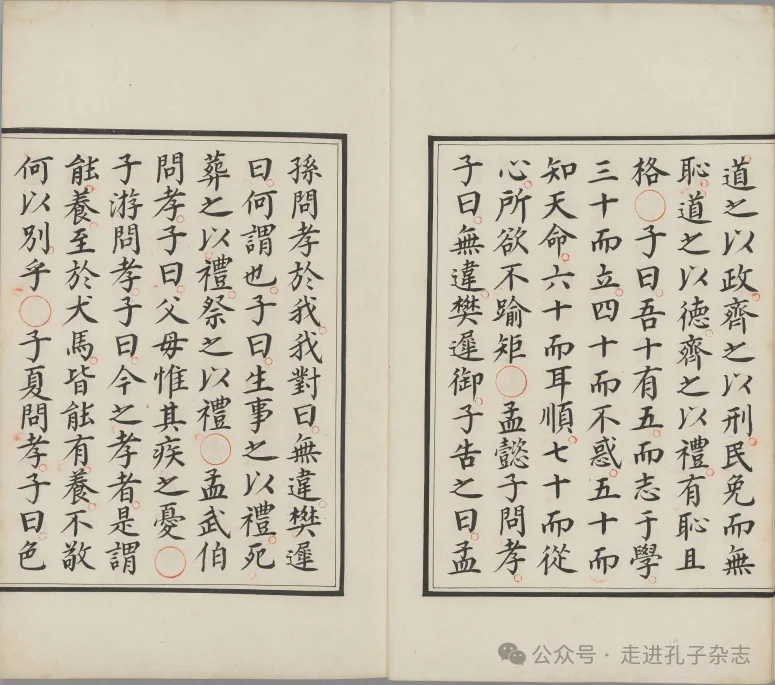 道之以政齊之以刑民免而無
恥道之以德齊之以禮有恥且
格〇子曰吾十有五而志于學
三十而立四十而不惑五十而
知天命六十而耳順七十而從
心所欲不踰矩〇孟懿子問孝
子曰無違樊遲御子告之曰孟
孫問孝於我我對曰無違樊遲
曰何謂也子曰生事之以禮死
葬之以禮祭之以禮〇孟武伯
問孝子曰父母惟其疾之憂〇
子游問孝子曰今之孝者是謂
能養至於犬馬皆能有養不敬
何以別乎〇子夏問孝子曰色
公众号·走进孔子杂志